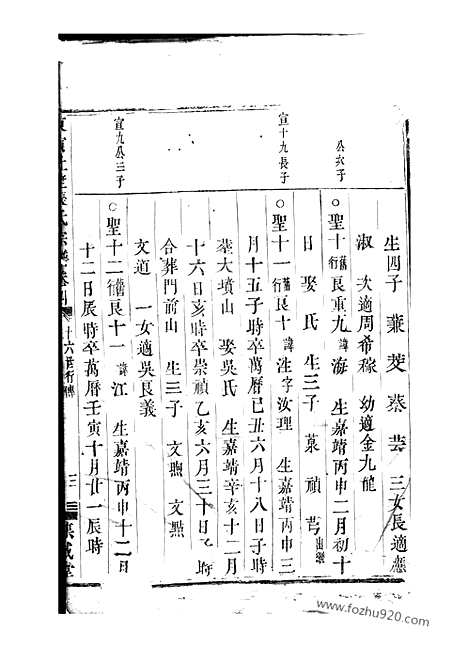 生四子 蕖 芰 蓁 芸 三女長適應
淑 次適周希稼 幼適金九能
公六子
○聖十舊行良重九諱海 生嘉靖丙申二月初十
日 娶氏 生三子 泉 禎 芎出繼
宣十九長子
○聖十一舊行良十諱泩字汝理 生嘉靖丙申三
月十五子時卒萬曆己丑六月十八日子時
塟大墳山 娶吳氏 生嘉靖辛亥十二月
十六日亥時卒崇禎乙亥六月三十日 時
合葬門前山 生三子 文煦 文㸃
文道 一女適吳良義
宣九公三子
○聖十二舊行良十一諱江 生嘉靖丙申十二月
十二日辰時卒萬曆壬寅十月廿一辰時
氏宗譜卷 十六世行傳 三 集誠堂
www.fozhu920.com